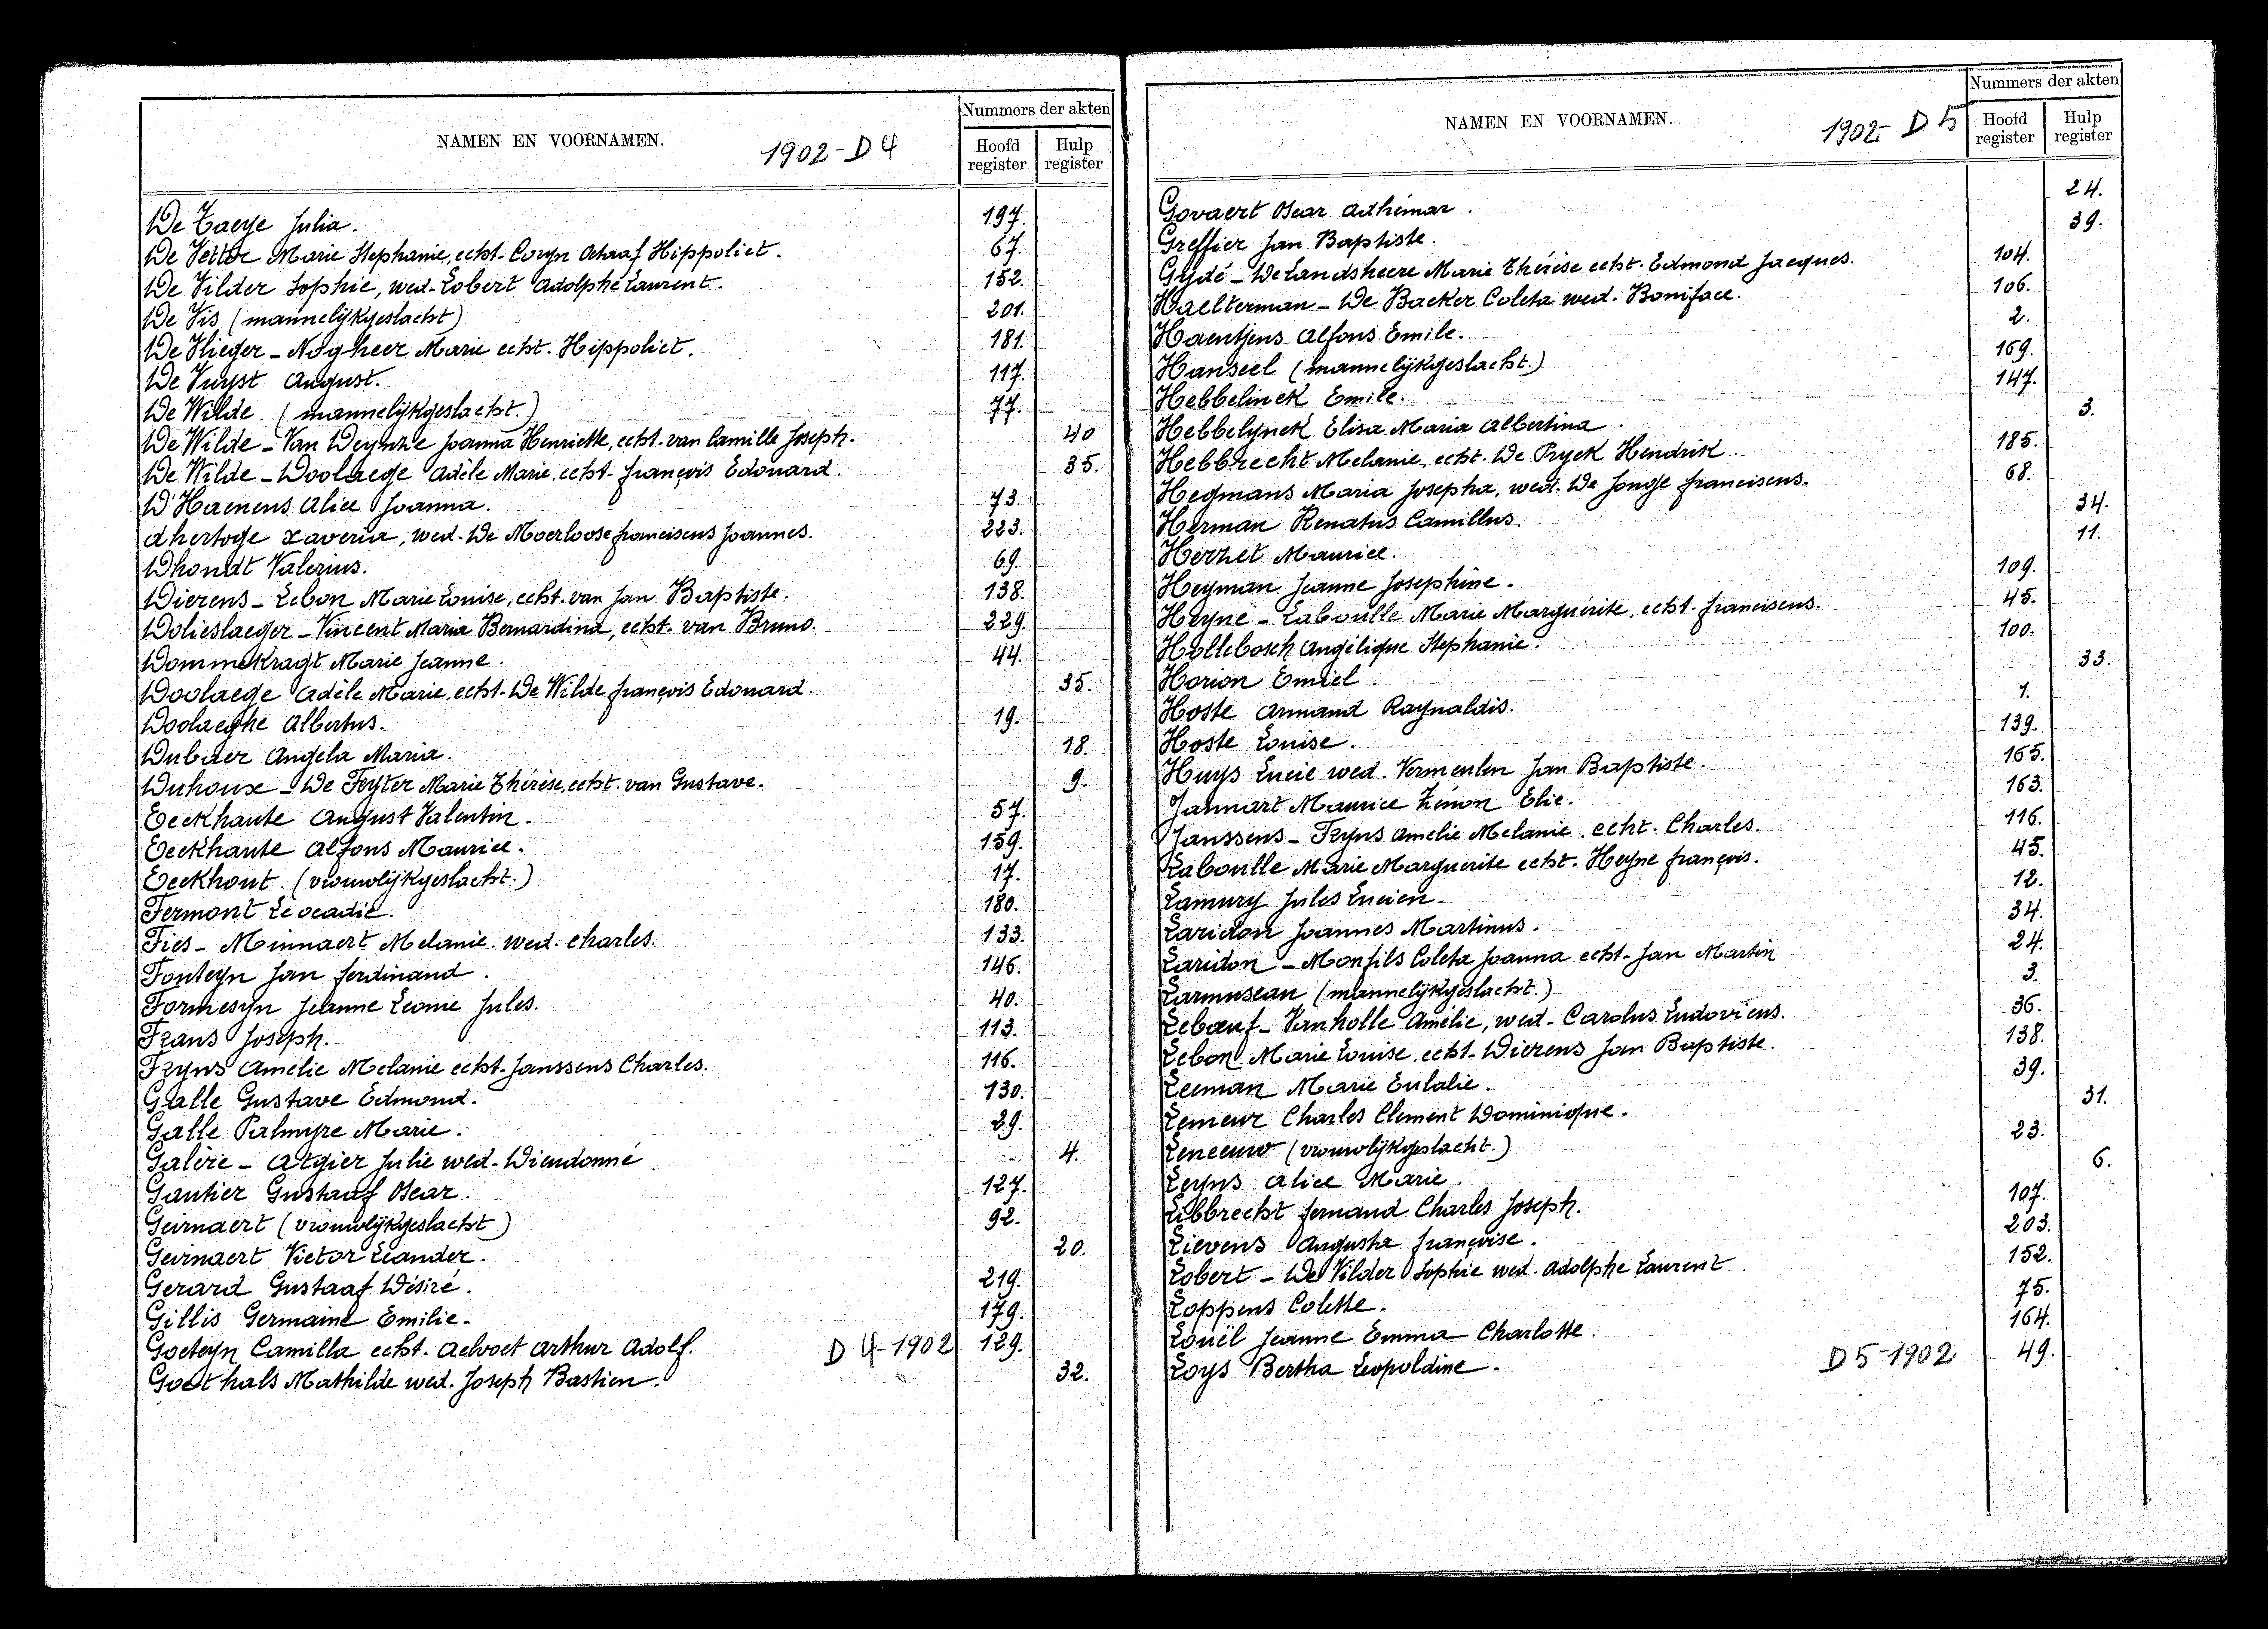 NAMEN EN VOORNAMEN. 1902-D4
Nummers der akten
Hoofd register Hulp register
De Taeye Julia. 197.
De Vettor Marie Stephanie, echt. Coryn Hippoliet. 67.
De Vilder Sophie, wed. Lobert Adolphe Laurent. 152.
De Vis (mannelijkgeslacht) 201.
De Vlieger - Nogheer Marie echt. Hippoliet. 181.
De Vuyst August. 117.
De Wilde. (mannelijkgeslacht.) 77.
De Wilde - Van Deynze Joanna Henriette, echt. van Camille Joseph. 40
De Wilde - Doolaege Adèle Marie, echt. françois Edouard. 35.
D'Haenens Alice Joanna. 73.
dhertoge Xaveria, wed. De Moerloose franciscus Joannes. 223.
Dhondt Valerius. 69.
Dierens - Lebon Marie Louise, echt. van Jan Baptiste. 138.
Dolieslaeger - Vincent Maria Bernardina, echt. van Bruno. 229.
Dommekragt Marie Jeanne. 44.
Doolaege Adèle Marie, echt. De Wilde françois Edouard. 35.
Doolaeghe Albertus. 19.
Dubaer Angela Maria. 18.
Duhoux - De Feyter Marie Thérèse, echt. van Gustave. 9.
Eeckhaute August Valentin. 57.
Eeckhaute Alfons Maurice. 159.
Eeckhout. (vrouwlijkgeslacht.) 17.
Fermont Leocadie. 180.
Fies - Minnaert Melanie. wed. Charles. 133.
Fonteyn Jan ferdinand. 146.
Formesyn Jeanne Leonie Jules. 40.
Frans Joseph. 113.
Fryns Amelie Melanie echt. Janssens Charles. 116.
Galle Gustave Edmond. 130.
Galle Palmyre Marie. 29.
Galère - Atgier Julie wed. Dieudonné. 4.
Gautier Gustaaf Oscar. 127.
Geirnaert (vrouwlijkgeslacht) 92.
Geirnaert Victor Leander. 20.
Gerard Gustaaf Désiré. 219.
Gillis Germaine Emilie. 179.
Goeteyn Camilla echt. Aelvoet Arthur Adolf. D 4-1902 129.
Goethals Mathilde wed. Joseph Bastien. 32.
NAMEN EN VOORNAMEN. 1902- D5
Nummers der akten
Hoofd register Hulp register
Govaert Oscar Adhémar. 24.
Greffier Jan Baptiste. 39.
Gydé - De Landsheere Marie Thérèse echt. Edmond Jacques. 104.
Haelterman - De Backer Coleta wed. Boniface. 106.
Haentjens Alfons Emile. 2.
Hanseel (mannelijkgeslacht.) 169.
Hebbelinck Emile. 147.
Hebbelynck Elisa Maria Albertina. 3.
Hebbrecht Melanie, echt. De Pryck Hendrik. 185.
Hegmans Maria Josepha, wed. De Jonge franciscus. 68.
Herman Renatus Camillus. 34.
Herzet Maurice. 11.
Heyman Jeanne Josephine. 109.
Heyne - Laboulle Marie Marguérite, echt. franciscus. 45.
Hollebosch Angélique Stephanie. 100.
Horion Emiel. 33.
Hoste Armand Raynaldis. 1.
Hoste Louise. 139.
Huys Lucie wed. Vermeulen Jan Baptiste. 165.
Jannart Maurice Zénon Elie. 163.
Janssens - Fryns Amelie Melanie. echt. Charles. 116.
Laboulle Marie Marguerite echt. Heyne françois. 45.
Lamury Jules Lucien. 12.
Laridon Joannes Martinus. 34.
Laridon - Monfils Coleta Joanna echt. Jan Martin 24.
Larmuseau (mannelijkgeslacht.) 3.
Lebœuf - Vanholle Amélie, wed. Carolus Ludovicus. 36.
Lebon Marie Louise, echt. Dierens Jan Baptiste. 138.
Leeman Marie Eulalie. 39.
Lemeur Charles Clement Dominique. 31.
Leneeuw (vrouwlijkgeslacht.) 23.
Leyns Alice Marie. 6.
Libbrecht fernand Charles Joseph. 107.
Lievens Augusta françoise. 203.
Lobert - De Vilder Sophie wed. Adolphe Laurent. 152.
Loppens Colette. 75.
Louël Jeanne Emma Charlotte. 164.
Loys Bertha Leopoldine. D5-1902 49.